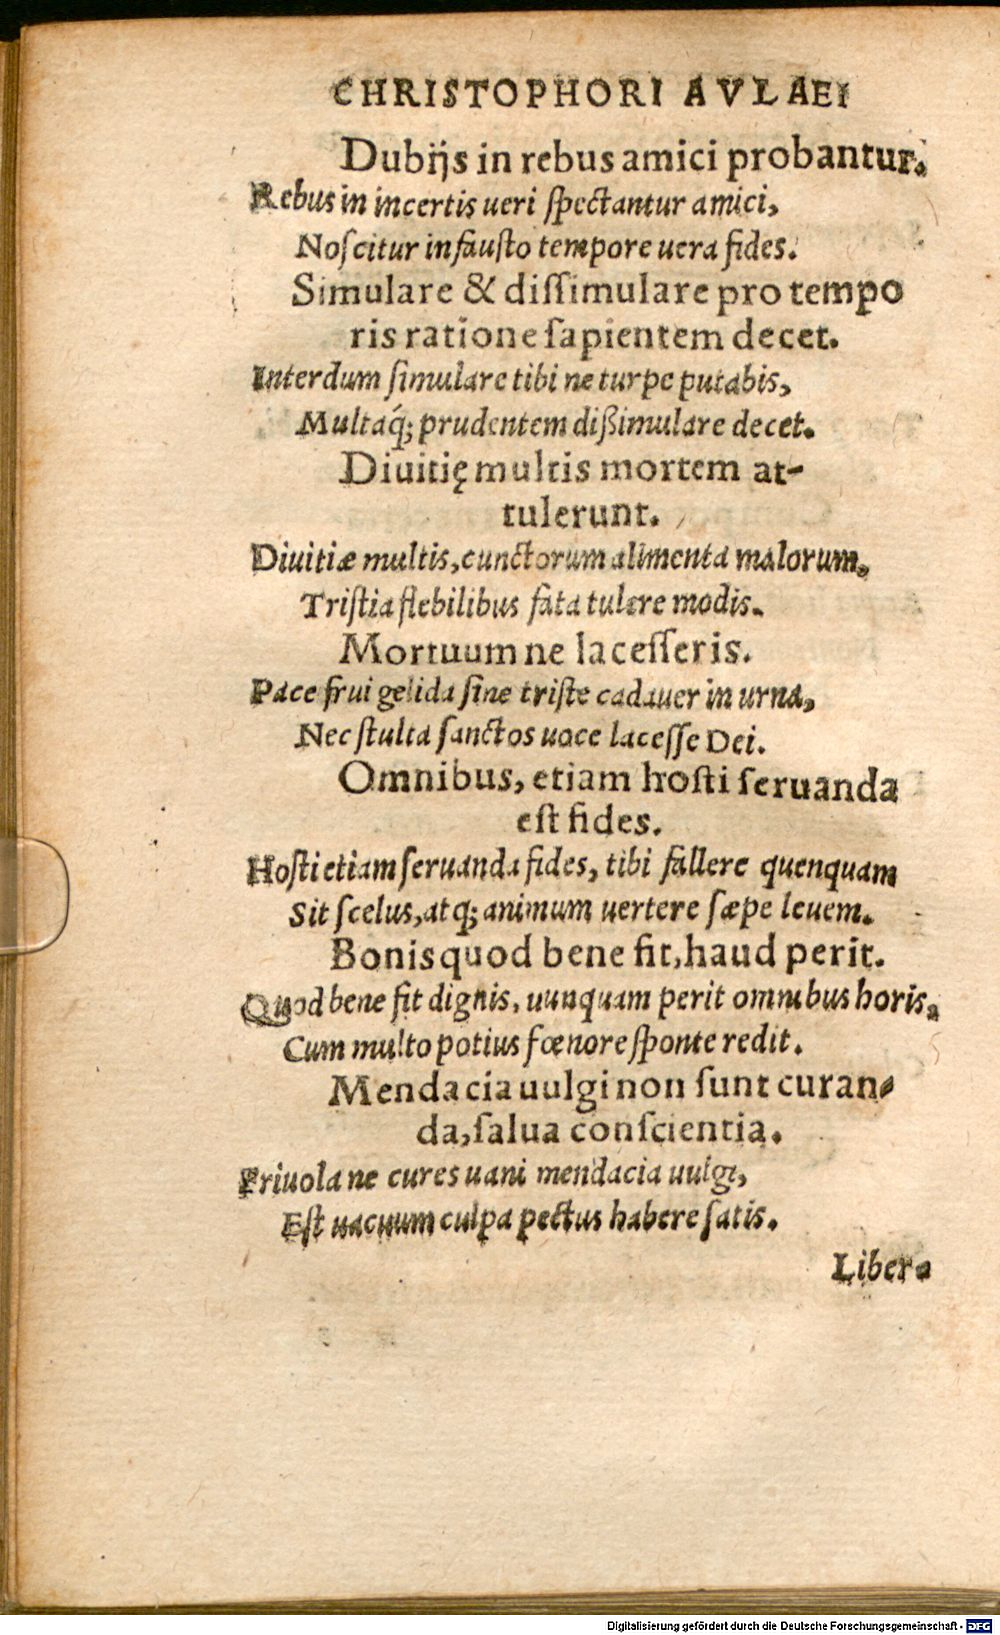 CHRISTOPHORI AVLAEI
Dubijs in rebus amici probantur.
Rebus in incertis ueri ſpectantur amici,
Noſcitur infauſto tempore uera fides.
Simulare & diſſimulare pro tempo
ris ratione ſapientem decet.
Interdum ſimulare tibi ne turpe putabis,
Multaq́; prudentem dißimulare decet.
Diuitię multis mortem at-
tulerunt.
Diuitiæ multis, cunctorum alimenta malorum,
Triſtia flebilibus fata tulere modis.
Mortuum ne laceſſeris.
Pace frui gelida ſine triſte cadauer in urna,
Nec ſtulta ſanctos uoce laceſſe Dei.
Omnibus, etiam hoſti ſeruanda
eſt fides.
Hoſti etiam ſeruanda fides, tibi fallere quenquam
Sit ſcelus, atq; animum uertere ſæpe leuem.
Bonis quod bene fit, haud perit.
Quod bene fit dignis, uunquam perit omnibus horis,
Cum multo potius fœnore ſponte redit.
Mendacia uulgi non ſunt curan-
da, ſalua conſcientia.
Friuola ne cures uani mendacia uulgi,
Eſt uacuum culpa pectus habere ſatis.
Liber-
Digitalisierung gefördert durch die Deutsche Forschungsgemeinschaft - DFG